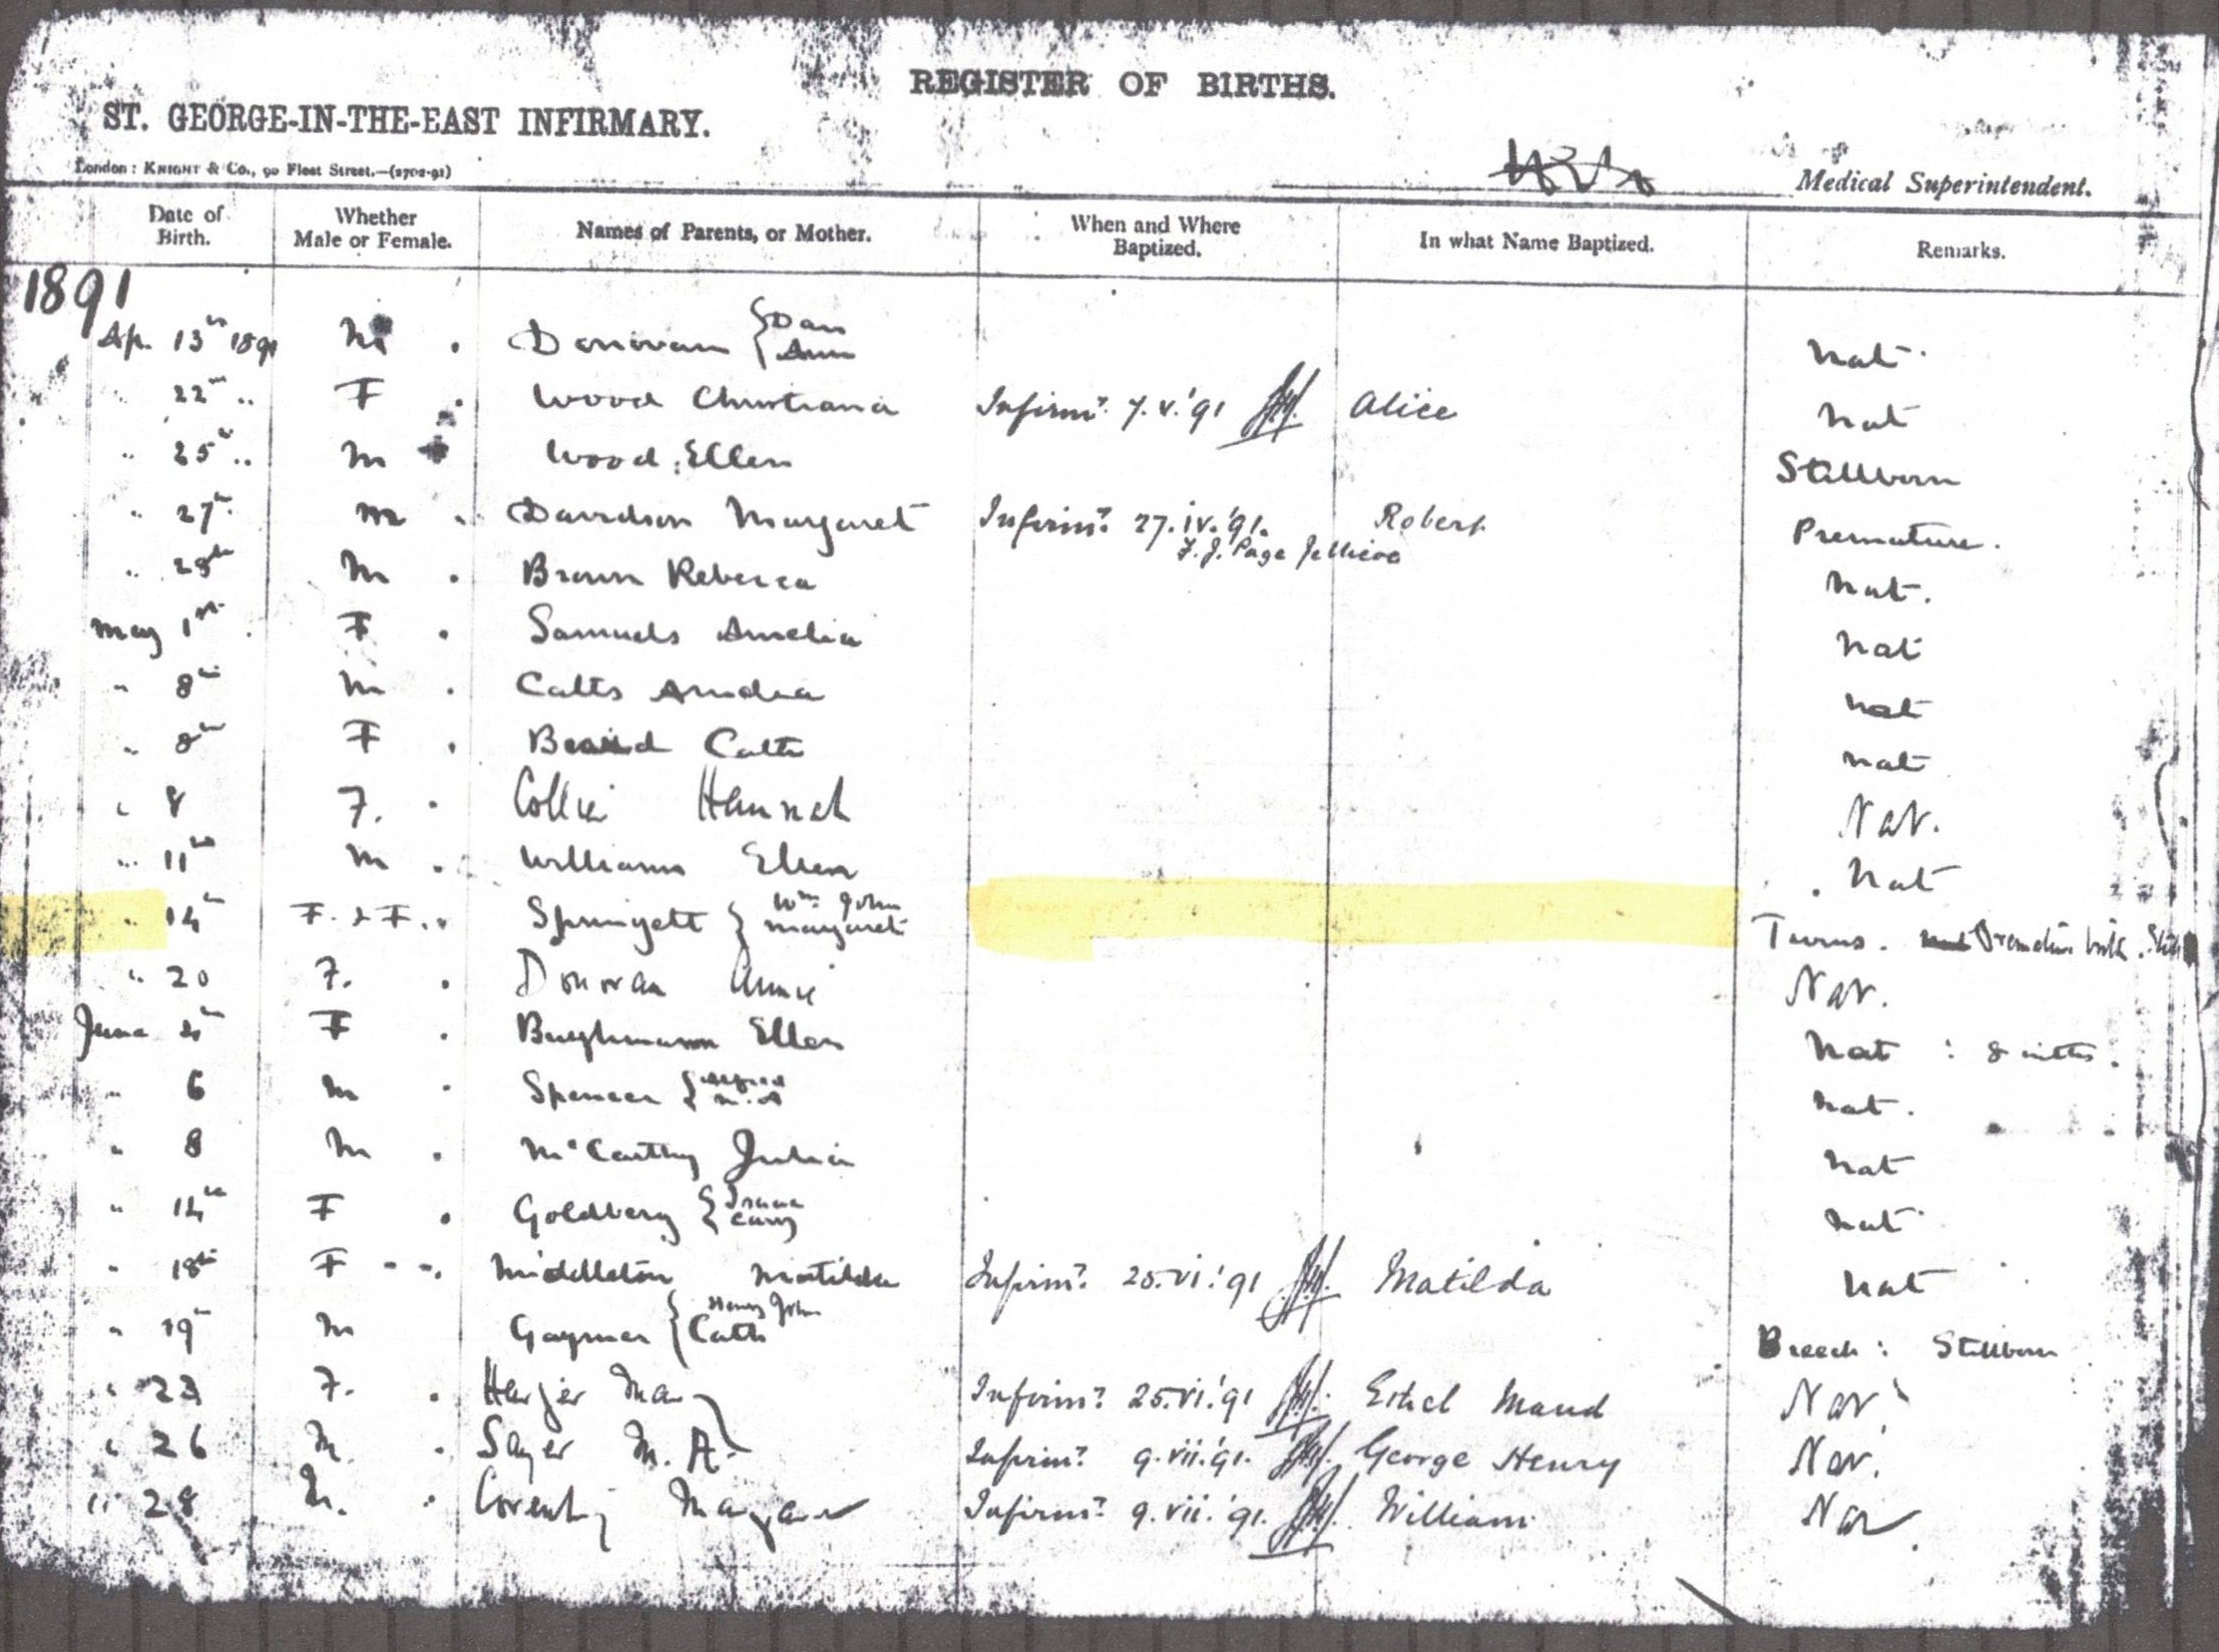 REGISTER OF BIRTHS.
ST. GEORGE-IN-THE-EAST INFIRMARY.
London: KNIGHT & Co., 90 Fleet Street.—(2702-91)
Medical Superintendent.
Date of Birth. Whether Male or Female. Names of Parents, or Mother. When and Where Baptized. In what Name Baptized. Remarks.
1891
Ap. 13th 1891 M Donovan { Dan Ann Nat
" 22nd " F Wood Christiana Infirmy. 7.v.'91 Alice Nat
" 25th " M Wood Ellen Stillborn
" 27th M Davidson Margaret Infirmy. 27.iv.'91. F. J. Page Jellicoe Robert Premature.
" M Brown Rebecca Nat.
May 1st F Samuels Amelia Nat
" 8th M Catts Nat
" 8th F Cath Nat
" 8 F. Collier Hannah Nat.
" 11th M Williams Ellen Nat
" 14th F. & F. Springett { Wm John Margaret Twins. Premature birth.
" 20 F. Donovan Annie Nat.
June 4th F Ellen Nat : 8
" 6 M Spencer { Nat.
" 8 M McCarthy Julia Nat
" 14th F Goldberg { Nat
" 18th F Middleton Matilda Infirmy. 25.vi.'91 Matilda Nat
" 19th M Gaymer { Henry John Cath Breech : Stillborn
" 23 F. Infirmy. 25.vi.'91 Ethel Maud Nat.
" 26 M. Sayer M. A. Infirmy. 9.vii.'91. George Henry Nat.
" 28 M. Infirmy. 9.vii.'91. William Nat